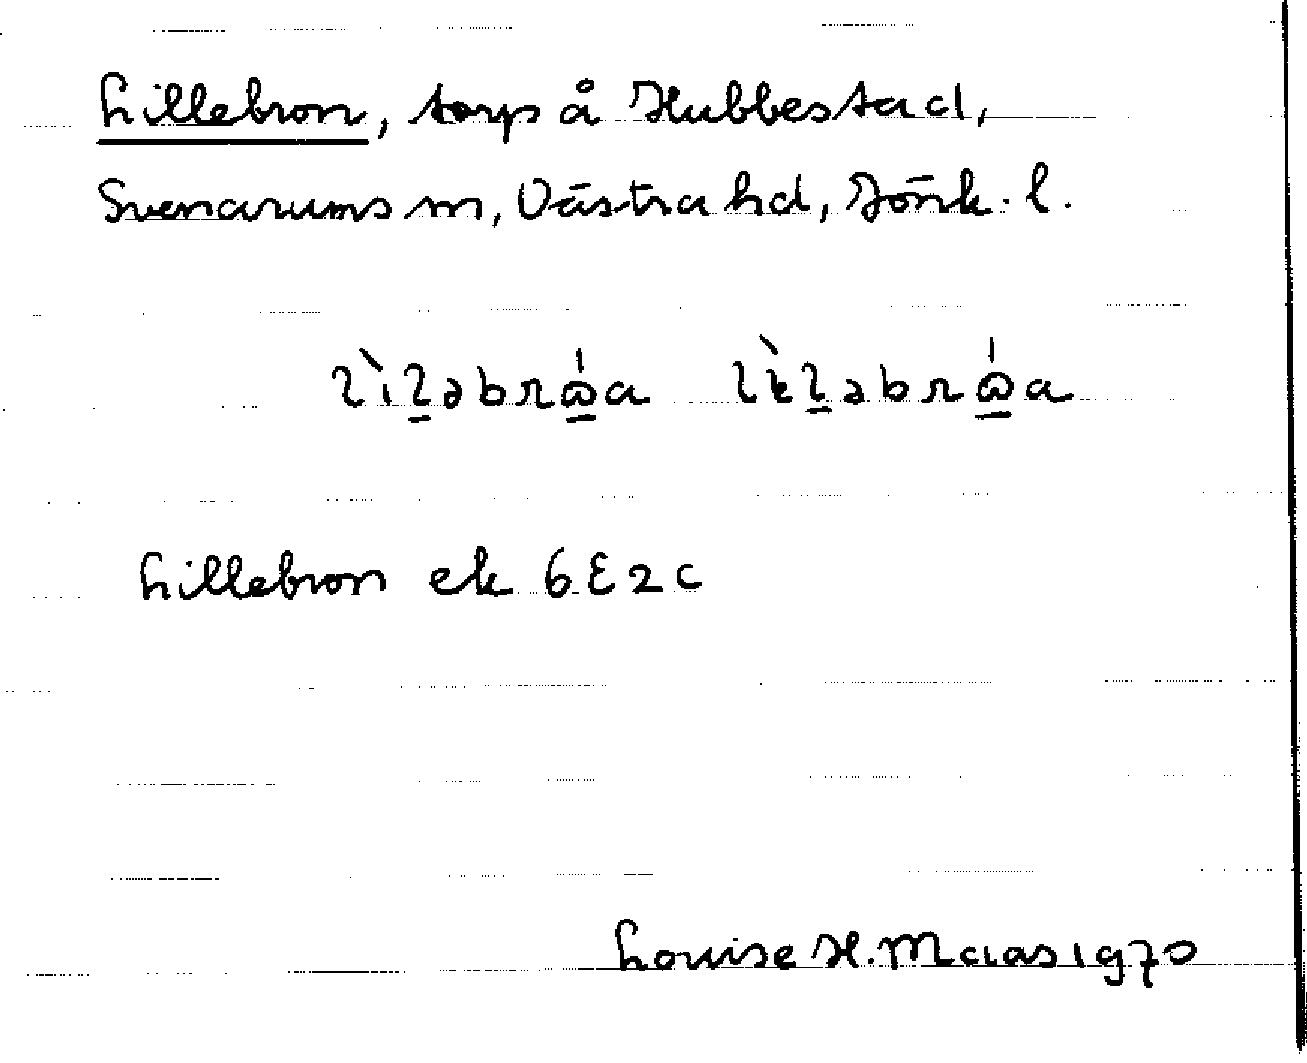 Lillebron, torp å Hubbestad,
Svenarums sn, Västra hd, Jönk. l.
lìl̲əbrɷ̲́a lìl̲əbrɷ̲́a
Lillebron ek 6E2c
Louise H. Maas 1970